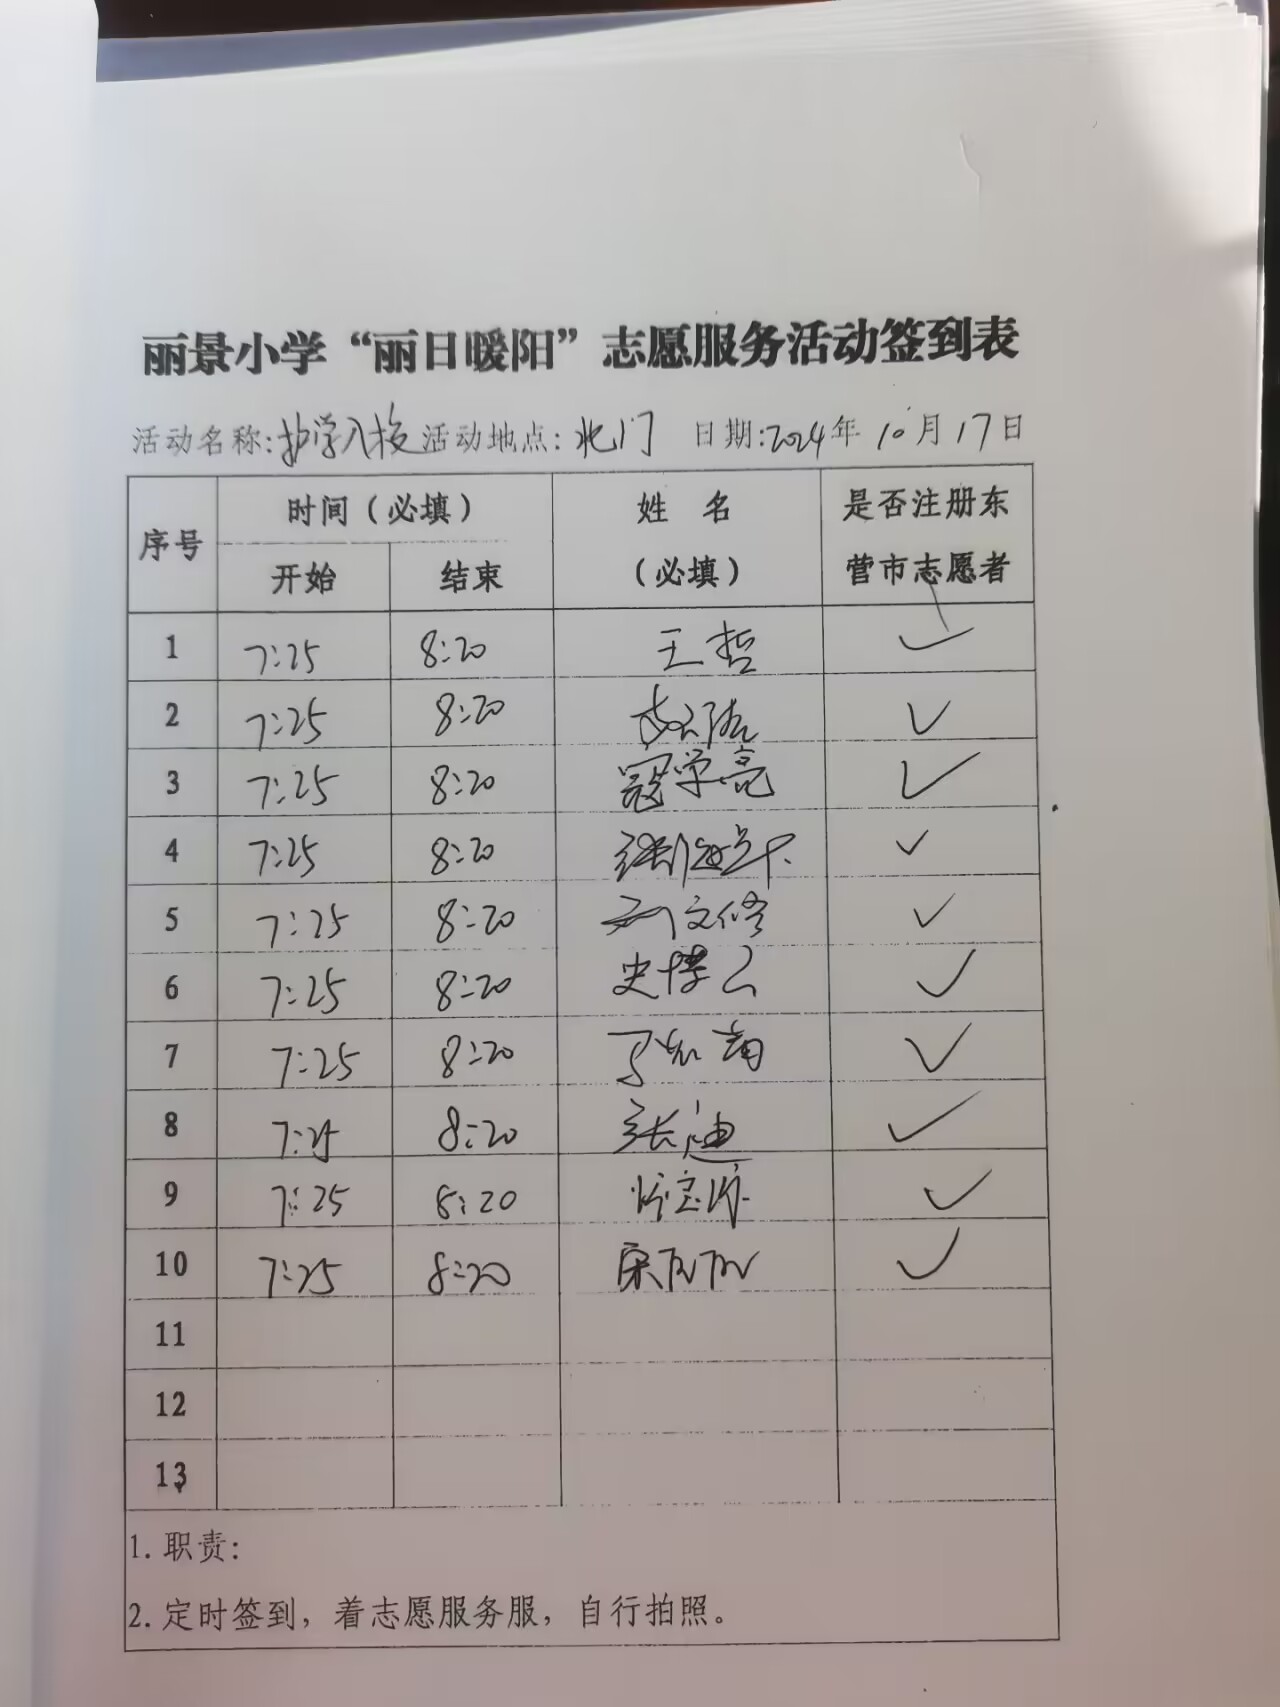 丽景小学“丽日暖阳”志愿服务活动签到表
活动名称:护学入校 活动地点:北门 日期:2024年10月17日
序号 时间(必填) 姓 名 是否注册东
开始 结束 (必填) 营市志愿者
1 7:25 8:20 王哲 ✓
2 7:25 8:20 ✓
3 7:25 8:20 寇学亮 ✓
4 7:25 8:20 ✓
5 7:25 8:20 刘文修 ✓
6 7:25 8:20 史博 ✓
7 7:25 8:20 ✓
8 7:25 8:20 张迪 ✓
9 7:25 8:20 ✓
10 7:25 8:20 ✓
11
12
13
1. 职责:
2. 定时签到，着志愿服务服，自行拍照。